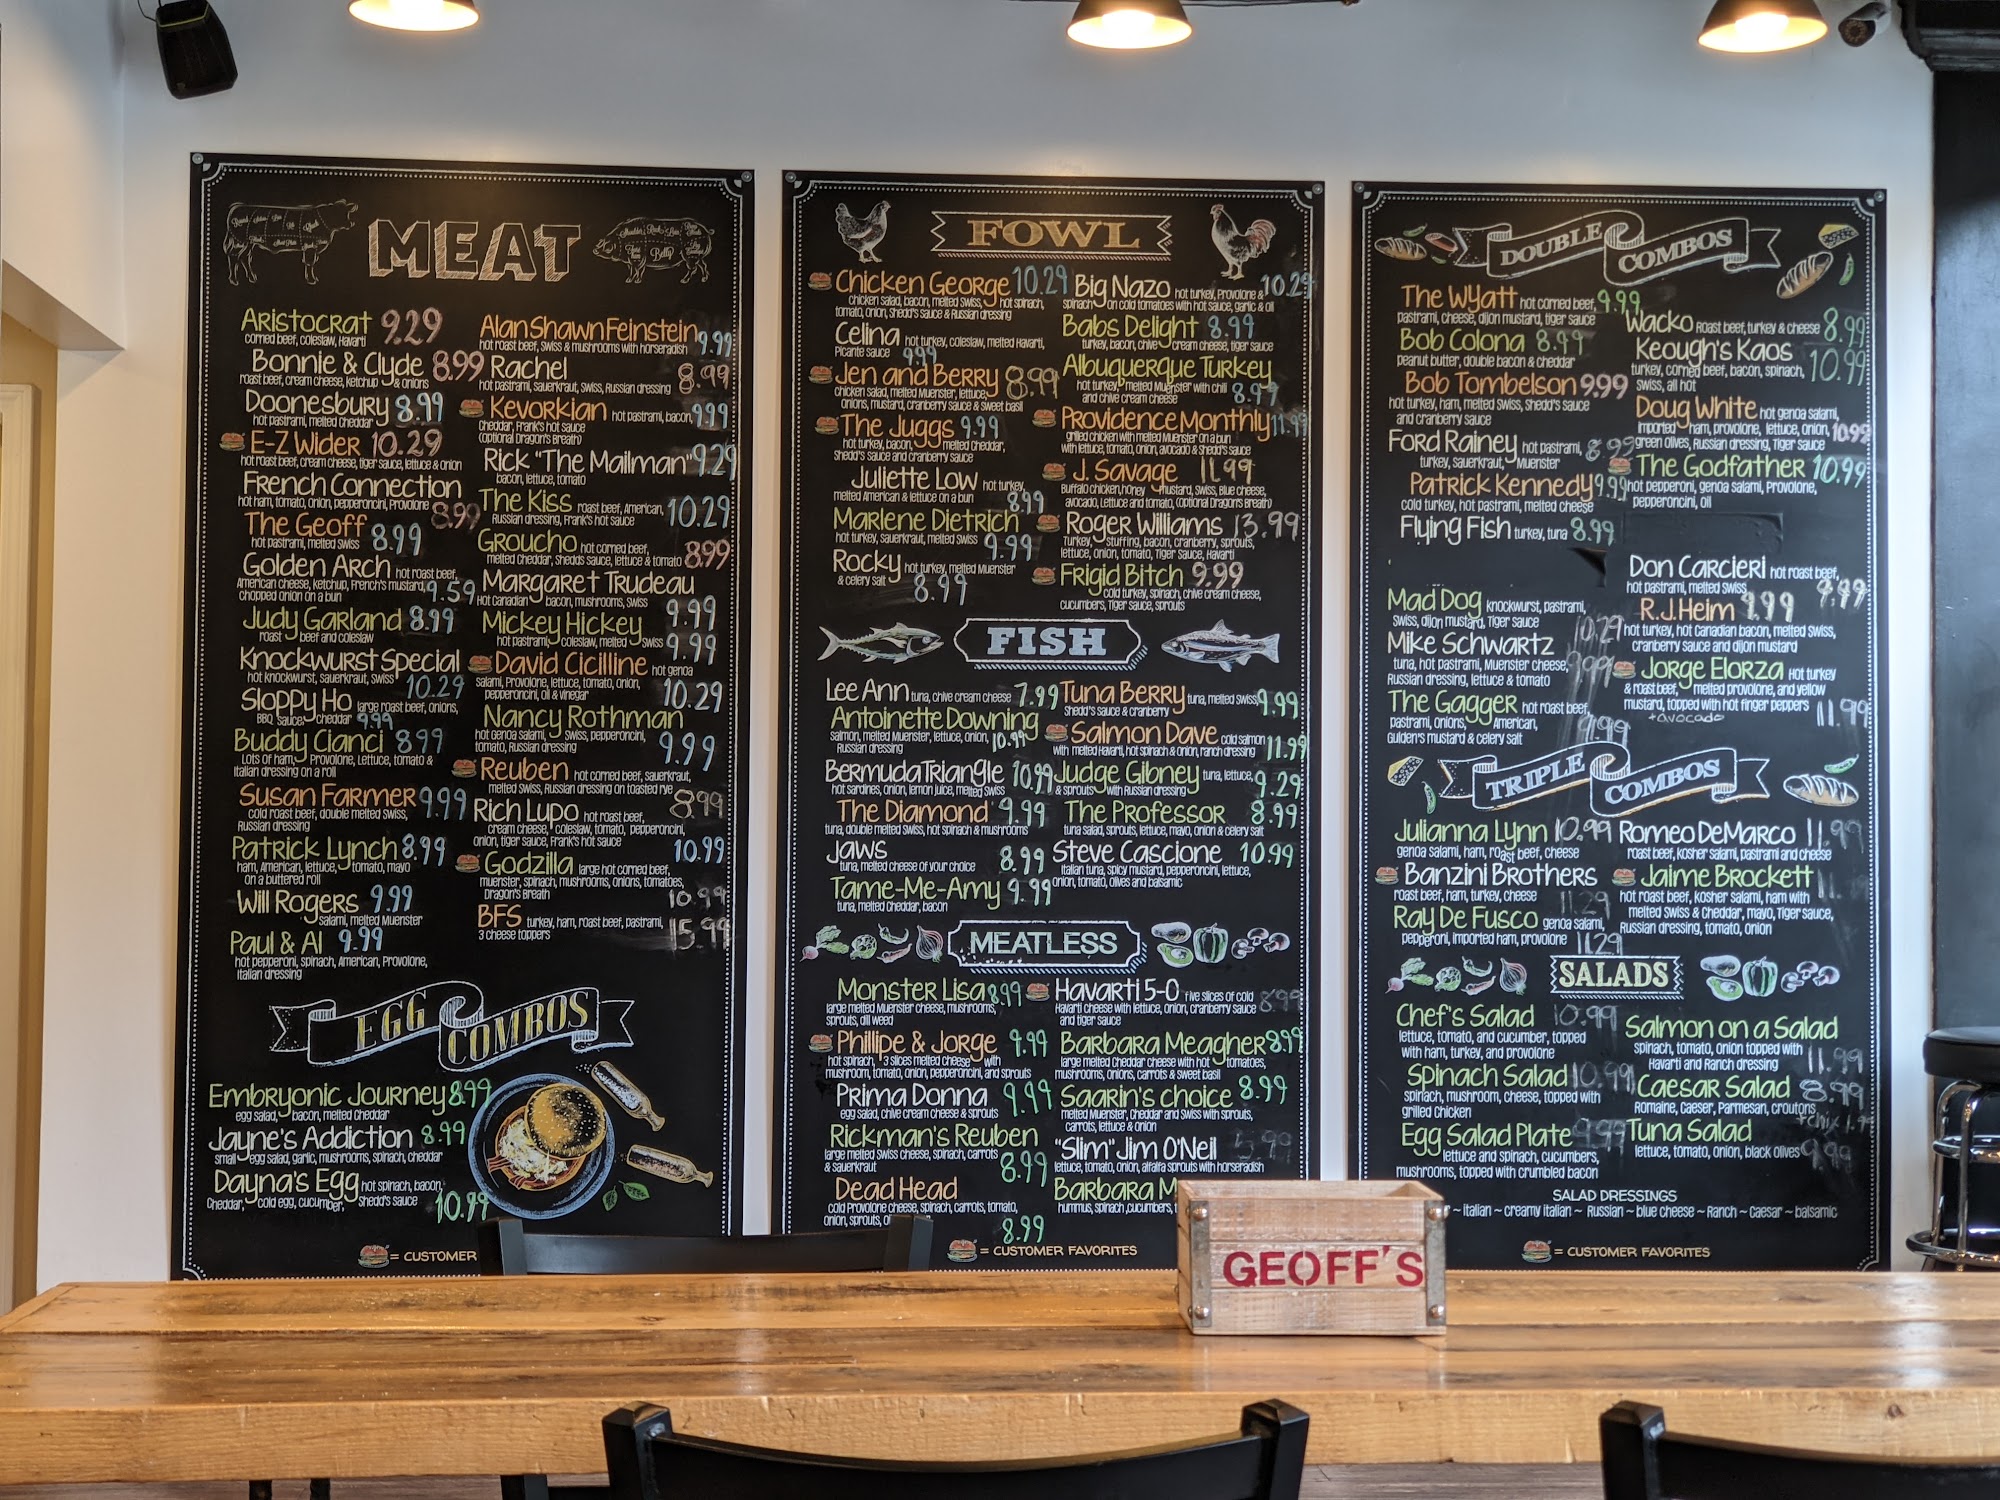 MEAT
Aristocrat 9.29
corned beef, coleslaw, Havarti
Bonnie & Clyde 8.99
roast beef, cream cheese, ketchup & onions
Doonesbury 8.99
hot pastrami, melted Cheddar
E-Z Wider 10.29
hot roast beef, cream cheese, tiger sauce, lettuce & onion
French Connection
hot ham, tomato, onion, pepperoncini, Provolone 8.99
The Geoff 8.99
hot pastrami, melted Swiss
Golden Arch hot roast beef,
American cheese, ketchup, French's mustard, 9.59
chopped onion on a bun
Judy Garland 8.99
roast beef and coleslaw
Knockwurst Special
hot knockwurst, sauerkraut, Swiss 10.29
Sloppy Ho large roast beef, onions,
BBQ sauce, cheddar 9.99
Buddy Cianci 8.99
Lots of ham, Provolone, Lettuce, tomato &
Italian dressing on a roll
Susan Farmer 9.99
cold roast beef, double melted Swiss,
Russian dressing
Patrick Lynch 8.99
ham, American, lettuce, tomato, mayo
on a buttered roll
Will Rogers 9.99
salami, melted Muenster
Paul & Al 9.99
hot pepperoni, spinach, American, Provolone,
Italian dressing
Alan Shawn Feinstein 9.99
hot roast beef, Swiss & mushrooms with horseradish
Rachel 8.99
hot pastrami, sauerkraut, Swiss, Russian dressing
Kevorkian hot pastrami, bacon, 9.99
Cheddar, Frank's hot sauce
(optional Dragon's Breath)
Rick "The Mailman" 9.29
bacon, lettuce, tomato
The Kiss roast beef, American, 10.29
Russian dressing, Frank's hot sauce
Groucho hot corned beef,
melted Cheddar, Shedds sauce, lettuce & tomato 8.99
Margaret Trudeau
Hot Canadian bacon, mushrooms, Swiss 9.99
Mickey Hickey
hot pastrami, coleslaw, melted Swiss 9.99
David Cicilline hot genoa
salami, Provolone, lettuce, tomato, onion,
pepperoncini, oil & vinegar 10.29
Nancy Rothman
hot genoa salami, Swiss, pepperoncini,
tomato, Russian dressing 9.99
Reuben hot corned beef, sauerkraut,
melted Swiss, Russian dressing on toasted rye
Rich Lupo hot roast beef, 8.99
cream cheese, coleslaw, tomato, pepperoncini,
onion, tiger sauce, Frank's hot sauce 10.99
Godzilla large hot corned beef,
muenster, spinach, mushrooms, onions, tomatoes,
Dragon's Breath 10.99
BFS turkey, ham, roast beef, pastrami,
3 cheese toppers 15.99
EGG COMBOS
Embryonic Journey 8.99
egg salad, bacon, melted Cheddar
Jayne's Addiction 8.99
small egg salad, garlic, mushrooms, spinach, cheddar
Dayna's Egg hot spinach, bacon,
Cheddar, cold egg, cucumber, Shedd's sauce 10.99
= CUSTOMER
FOWL
Chicken George 10.29
chicken salad, bacon, melted Swiss, hot spinach,
tomato, onion, Shedd's sauce & Russian dressing
Celina hot turkey, coleslaw, melted Havarti,
Picante sauce 9.99
Jen and Berry 8.99
chicken salad, melted Muenster, lettuce,
onions, mustard, cranberry sauce & sweet basil
The Juggs 9.99
hot turkey, bacon, melted Cheddar,
Shedd's sauce and cranberry sauce
Juliette Low hot turkey,
melted American & lettuce on a bun 8.99
Marlene Dietrich
hot turkey, sauerkraut, melted Swiss 9.99
Rocky hot turkey, melted Muenster
& celery salt 8.99
Big Nazo hot turkey, Provolone & 10.29
spinach on cold tomatoes with hot sauce, garlic & oil
Babs Delight 8.99
turkey, bacon, chive cream cheese, tiger sauce
Albuquerque Turkey
hot turkey, melted Muenster with chili
and chive cream cheese 8.99
Providence Monthly 11.99
grilled chicken with melted Muenster on a bun
with lettuce, tomato, onion, avocado & Shedd's sauce
J. Savage 11.99
Buffalo chicken, honey mustard, Swiss, Blue cheese,
avocado, Lettuce and tomato, (optional Dragon's Breath)
Roger Williams 13.99
Turkey, stuffing, bacon, cranberry, sprouts,
lettuce, onion, tomato, Tiger sauce, Havarti
Frigid Bitch 9.99
cold turkey, spinach, chive cream cheese,
cucumbers, Tiger sauce, sprouts
FISH
Lee Ann tuna, chive cream cheese 7.99
Antoinette Downing
salmon, melted Muenster, lettuce, onion, 10.99
Russian dressing
Bermuda Triangle 10.99
hot sardines, onion, lemon juice, melted Swiss
The Diamond 9.99
tuna, double melted Swiss, hot spinach & mushrooms
Jaws 8.99
tuna, melted cheese of your choice
Tame-Me-Amy 9.99
tuna, melted Cheddar, bacon
Tuna Berry tuna, melted Swiss, 9.99
Shedd's sauce & cranberry
Salmon Dave cold salmon
with melted Havarti, hot spinach & onion, ranch dressing 11.99
Judge Gibney tuna, lettuce, 9.29
& sprouts with Russian dressing
The Professor 8.99
tuna salad, sprouts, lettuce, mayo, onion & celery salt
Steve Cascione 10.99
Italian tuna, spicy mustard, pepperoncini, lettuce,
onion, tomato, olives and balsamic
MEATLESS
Monster Lisa 8.99
large melted Muenster cheese, mushrooms,
sprouts, dill weed
Phillipe & Jorge 9.99
hot spinach, 3 slices melted cheese with
mushroom, tomato, onion, pepperoncini, and sprouts
Prima Donna 9.99
egg salad, chive cream cheese & sprouts
Rickman's Reuben
large melted Swiss cheese, spinach, carrots
& sauerkraut 8.99
Dead Head
cold Provolone cheese, spinach, carrots, tomato,
onion, sprouts,
8.99
Havarti 5-0 five slices of cold 8.99
Havarti cheese with lettuce, onion, cranberry sauce
and tiger sauce
Barbara Meagher 8.99
large melted Cheddar cheese with hot tomatoes,
mushrooms, onions, carrots & sweet basil
Saarin's choice 8.99
melted Muenster, Cheddar and Swiss with sprouts,
carrots, lettuce & onion
"Slim" Jim O'Neil 5.99
lettuce, tomato, onion, alfalfa sprouts with horseradish
Barbara M
hummus, spinach, cucumbers,
= CUSTOMER FAVORITES
DOUBLE COMBOS
The Wyatt hot corned beef, 9.99
pastrami, cheese, dijon mustard, tiger sauce
Bob Colona 8.99
peanut butter, double bacon & cheddar
Bob Tombelson 9.99
hot turkey, ham, melted Swiss, Shedd's sauce
and cranberry sauce
Ford Rainey hot pastrami, 8.99
turkey, sauerkraut, Muenster
Patrick Kennedy 9.99
cold turkey, hot pastrami, melted cheese
Flying Fish turkey, tuna 8.99
Mad Dog knockwurst, pastrami,
Swiss, dijon mustard, Tiger sauce 10.29
Mike Schwartz
tuna, hot pastrami, Muenster cheese, 9.99
Russian dressing, lettuce & tomato
The Gagger hot roast beef,
pastrami, onions, American, 9.99
Gulden's mustard & celery salt
Wacko Roast beef, turkey & cheese 8.99
Keough's Kaos
turkey, corned beef, bacon, spinach, 10.99
Swiss, all hot
Doug White hot genoa salami,
imported ham, provolone, lettuce, onion, 10.99
green olives, Russian dressing, Tiger sauce
The Godfather 10.99
hot pepperoni, genoa salami, Provolone,
pepperoncini, oil
Don Carcieri hot roast beef,
hot pastrami, melted Swiss 9.99
R.J. Heim 9.99
hot turkey, hot Canadian bacon, melted Swiss,
cranberry sauce and dijon mustard
Jorge Elorza Hot turkey
& roast beef, melted provolone, and yellow
mustard, topped with hot finger peppers 11.99
+avocado
TRIPLE COMBOS
Julianna Lynn 10.99
genoa salami, ham, roast beef, cheese
Banzini Brothers
roast beef, ham, turkey, cheese 11.29
Ray De Fusco genoa salami,
pepperoni, imported ham, provolone 11.29
Romeo DeMarco 11.99
roast beef, kosher salami, pastrami and cheese
Jaime Brockett
hot roast beef, kosher salami, ham with
melted Swiss & Cheddar, mayo, Tiger sauce,
Russian dressing, tomato, onion
SALADS
Chef's Salad 10.99
lettuce, tomato, and cucumber, topped
with ham, turkey, and provolone
Spinach Salad 10.99
spinach, mushroom, cheese, topped with
grilled chicken
Egg Salad Plate 9.99
lettuce and spinach, cucumbers,
mushrooms, topped with crumbled bacon
Salmon on a Salad
spinach, tomato, onion topped with
Havarti and Ranch dressing 11.99
Caesar Salad 8.99
Romaine, Caeser, Parmesan, croutons
Tuna Salad
lettuce, tomato, onion, black olives 9.99
SALAD DRESSINGS
~ italian ~ creamy italian ~ Russian ~ blue cheese ~ Ranch ~ Caesar ~ balsamic
= CUSTOMER FAVORITES
GEOFF'S